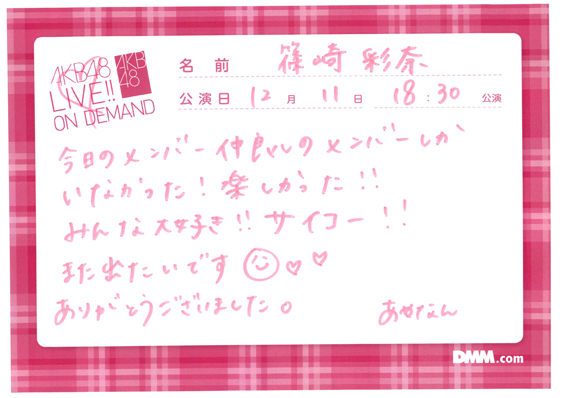 AKB48
LIVE!!
ON DEMAND
AKB
48
名前 篠崎彩奈
公演日 12月11日 18:30公演
今日のメンバー仲良しのメンバーしか
いなかった！楽しかった!!
みんな大好き!!サイコー!!
また出たいです
ありがとうございました。
あやなん
DMM.com